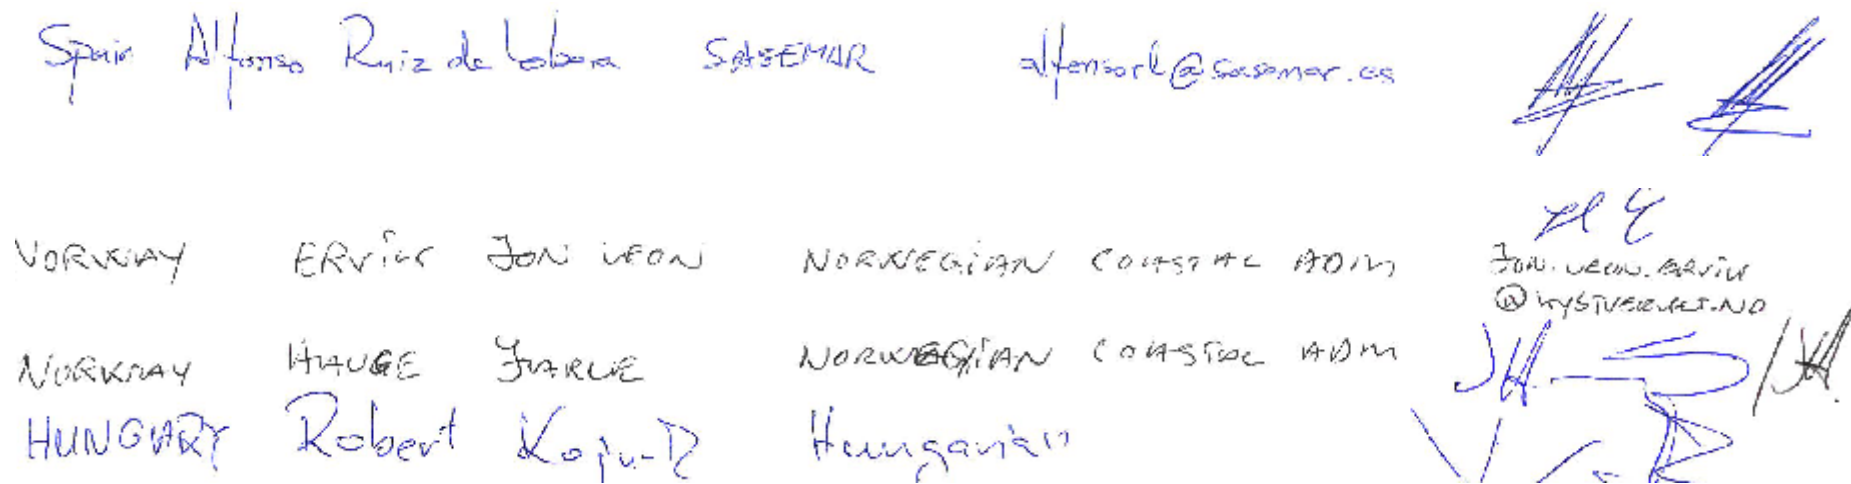 Spain Alfonso Ruiz de Lobera SASEMAR alfonsorl@sasemar.es
NORWAY ERVIK JON LEON NORWEGIAN COASTAL ADM JON.LEON.ERVIK
@KYSTVERKET.NO
NORWAY HAUGE JARLE NORWEGIAN COASTAL ADM JH
HUNGARY Robert Hungarian